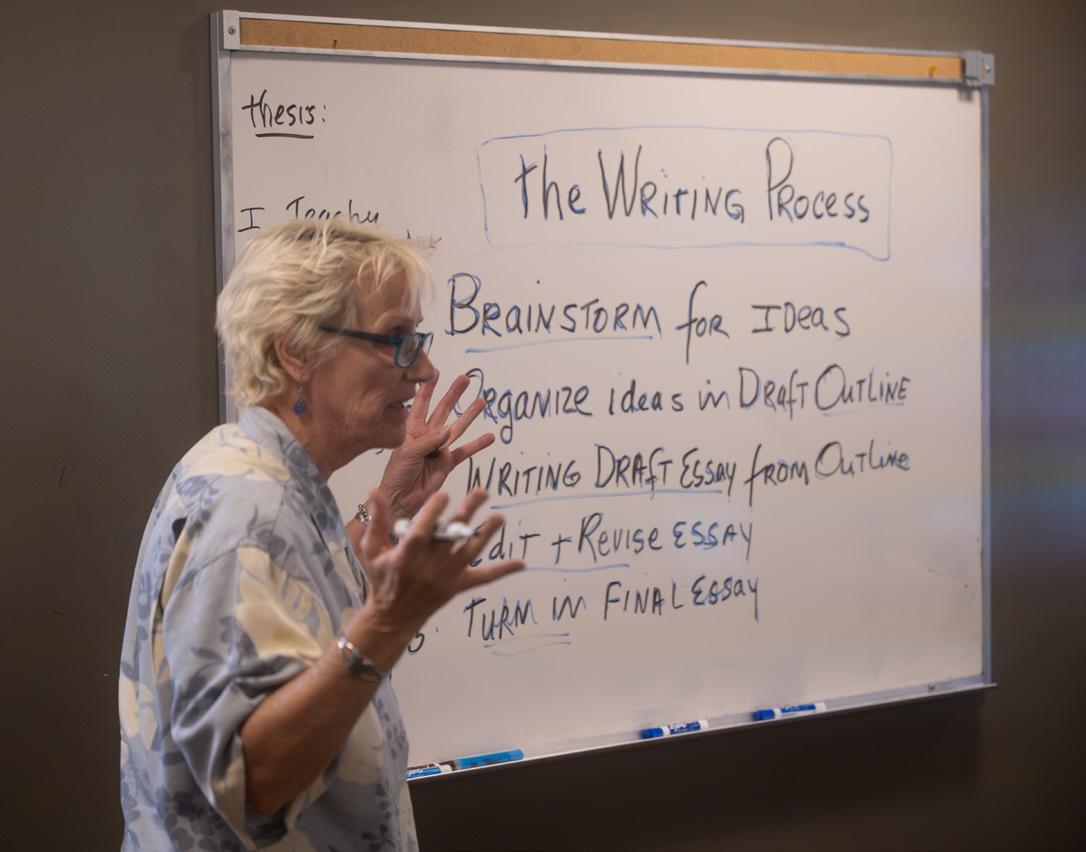 thesis:
I Teachy
the Writing Process
Brainstorm for Ideas
Organize ideas in Draft Outline
Writing Draft Essay from Outline
Edit + Revise Essay
5. Turn in Final Essay